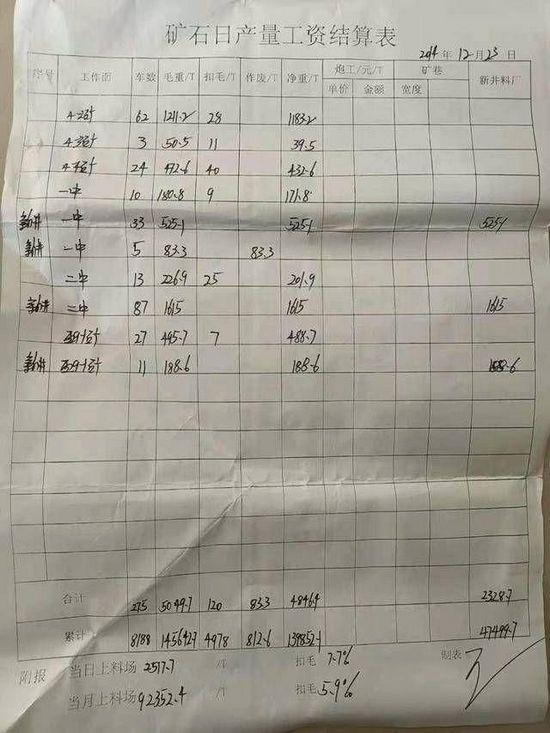 矿石日产量工资结算表
2014 年 12 月 23 日
序号 工作面 车数 毛重/T 扣毛/T 作废/T 净重/T 炮工/元/T 矿巷 新井料厂
单价 金额 宽度
62 1211.2 28 1183.2
3 50.5 11 39.5
24 472.6 40 432.6
一中 10 180.8 9 171.8
新井 一中 33 525.1 525.1 525.1
新井 一中 5 83.3 83.3
二中 13 226.9 25 201.9
新井 二中 87 1615 1615 1615
27 495.7 7 488.7
新井 11 188.6 188.6 188.6
合计 275 5049.7 120 83.3 4846.4 2328.7
累计 8188 145642.7 4978 812.6 139852.1 47499.7
附报 当日上料场 2517.7 /T 扣毛 7.7% 制表
当月上料场 92352.4 /T 扣毛 5.9%